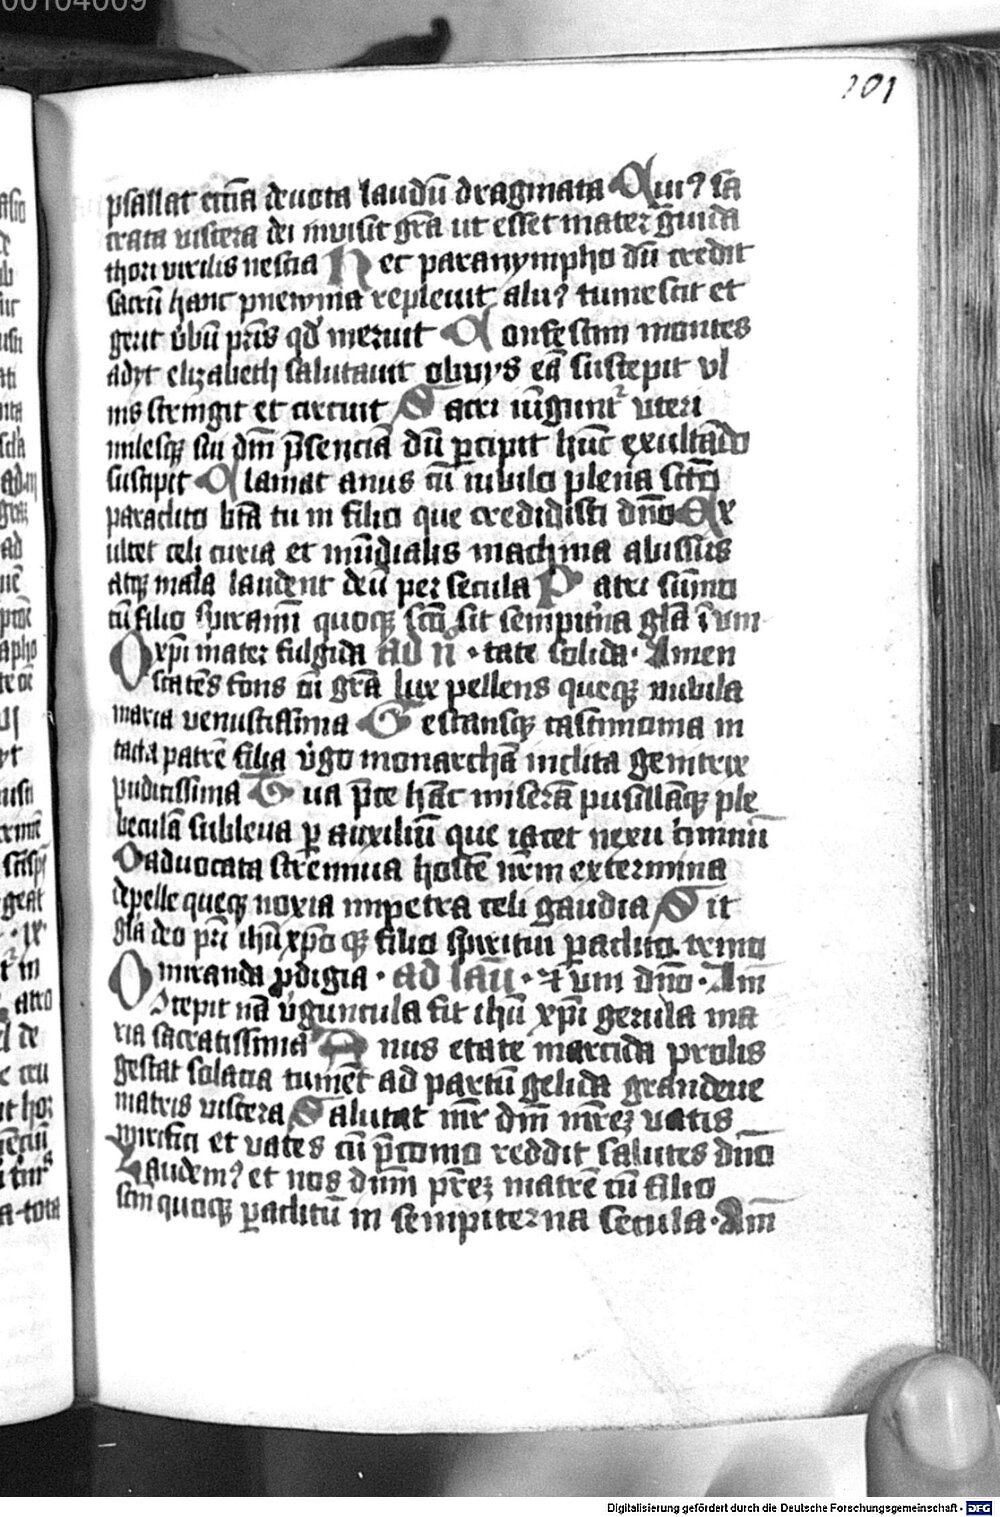 201
psallat cūcta deuota laudū dragmata Cui⁹ sa
crata viscera dei inuisit grā ut esset mater grauida
thori virilis nescia Hec paranympho dū credit
sacrū hanc pneuma repleuit alu⁹ tumescit et
gerit v̄bū pr̄is qd̄ meruit Confestim montes
adijt elizabeth salutauit obuijs eā suscepit vl
nis stringit et circuit Sacri iūgunt᷑ uteri
milesqꝫ sui dn̄i p̄senciā dū p̄cipit hūc exultādo
suscipit Clamat anus cū iubilo plena sctō
paraclito btā tu in filio que credidisti dn̄o Ex
ultet celi curia et mūdialis machina abissus
atqꝫ maia laudent deū per secula Patri sūmo
cū filio spiramī quoqꝫ sctō sit sempit̄na glā
O xp̄i mater fulgida ad n° tate solida Amen
scatēs fons cū grā lux pellens queqꝫ nubila
maria venustissima Gestansqꝫ castimonia in
tacta patrē filia v̄go monarchā inclita genitrix
pudicissima Tua p̄ce hāc miserā pusillāqꝫ ple
beculā subleua p auxiliū que iacet nexu c̄iminū
O aduocata strennua hostē nr̄m extermina
depelle queqꝫ noxia impetra celi gaudia Sit
glā deo pr̄i ihū xp̄o qꝫ filio spiritui paclito trino
O miranda p̄digia ad lau᷑ et vni dn̄o Am̄
nā v̄guncula fit ihū xp̄i gerula ma
ria sacratissima Anus etate marcida prolis
gestat solacia tumēt ad partū gelida grandeue
matris viscera Salutat mr̄ dn̄i mr̄eꝫ vatis
mirifici et vates cū p̄conio reddit salutes dn̄o
Laudem⁹ et nos dn̄m pr̄eꝫ matrē cū filio
scm̄ quoqꝫ paclitū in sempiterna secula Am̄
Digitalisierung gefördert durch die Deutsche Forschungsgemeinschaft - DFG